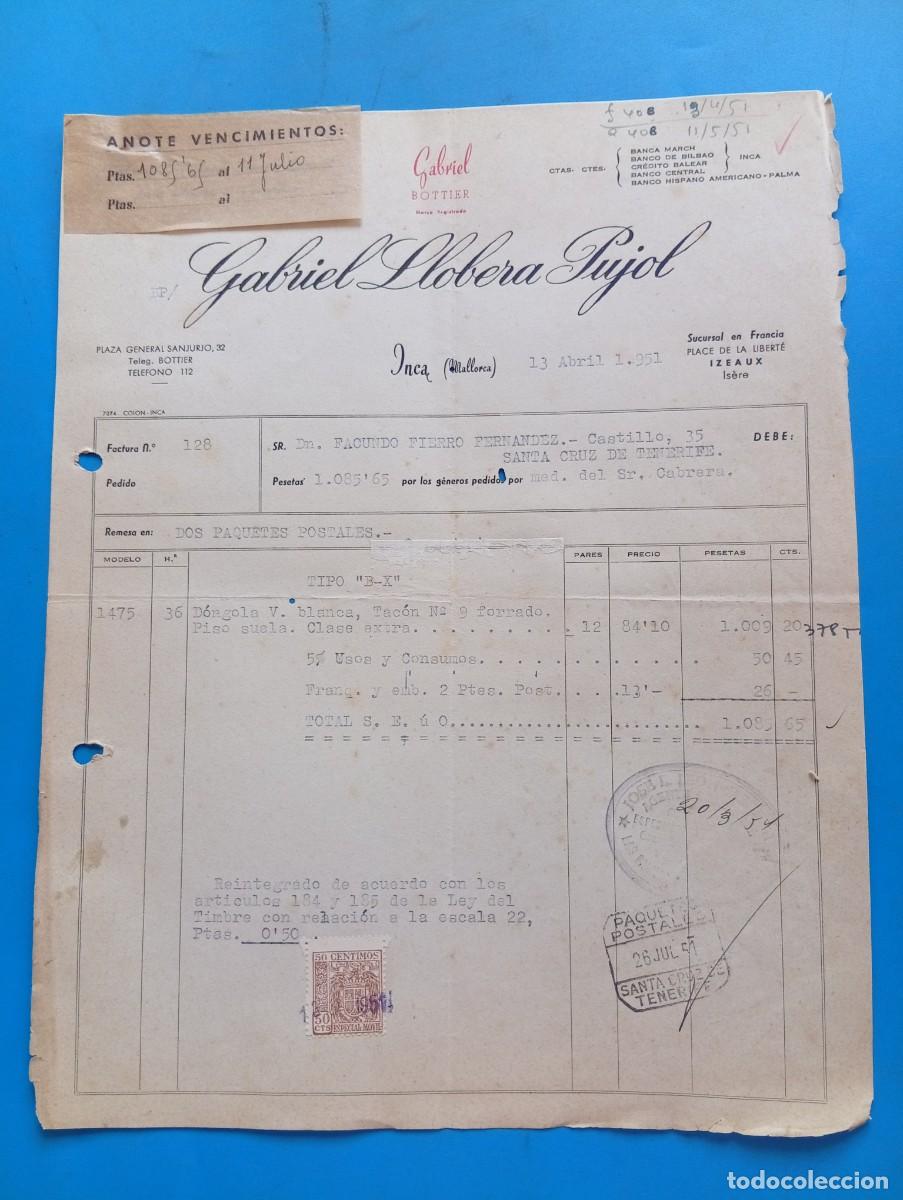 ANOTE VENCIMIENTOS:
Ptas. 1085'65 al 11 Julio
Ptas. al
Gabriel
BOTTIER
Marca Registrada
408 13/4/51
408 11/5/51
CTAS. CTES.
BANCA MARCH
BANCO DE BILBAO
CRÉDITO BALEAR
BANCO CENTRAL
BANCO HISPANO AMERICANO - PALMA
INCA
Gabriel Llobera Pujol
EP/
PLAZA GENERAL SANJURJO, 32
Teleg. BOTTIER
TELEFONO 112
Inca (Mallorca) 13 Abril 1.951
Sucursal en Francia
PLACE DE LA LIBERTÉ
IZEAUX
Isère
7074 COLON-INCA
Factura N.º 128
SR. Dn. FACUNDO FIERRO FERNANDEZ.- Castillo, 35 DEBE:
SANTA CRUZ DE TENERIFE.
Pedido
Pesetas 1.085'65 por los géneros pedidos por med. del Sr. Cabrera.
Remesa en: DOS PAQUETES POSTALES.-
MODELO H.ª PARES PRECIO PESETAS CTS.
TIPO "B-X"
1475 36 Dóngola V. blanca, Tacón Nº 9 forrado.
Piso suela. Clase extra. . . . . . . . . . 12 84'10 1.009 20 378
5% Usos y Consumos. . . . . . . . . . . . 50 45
Franq. y emb. 2 Ptes. Post. . . .13'- 26 -
TOTAL S. E. ú O. . . . . . . . . . . . . 1.085 65
= = = = = = = = = = = = = = = = = = = =
JOSE
20/3/54
Reintegrado de acuerdo con los
articulos 184 y 185 de la Ley del
Timbre con relación a la escala 22,
Ptas. 0'50 .
50 CENTIMOS
1951
50
CTS
ESPECIAL MOVIL
PAQUETES
POSTALES
26 JUL 51
SANTA CRUZ DE
TENERIFE
todocoleccion